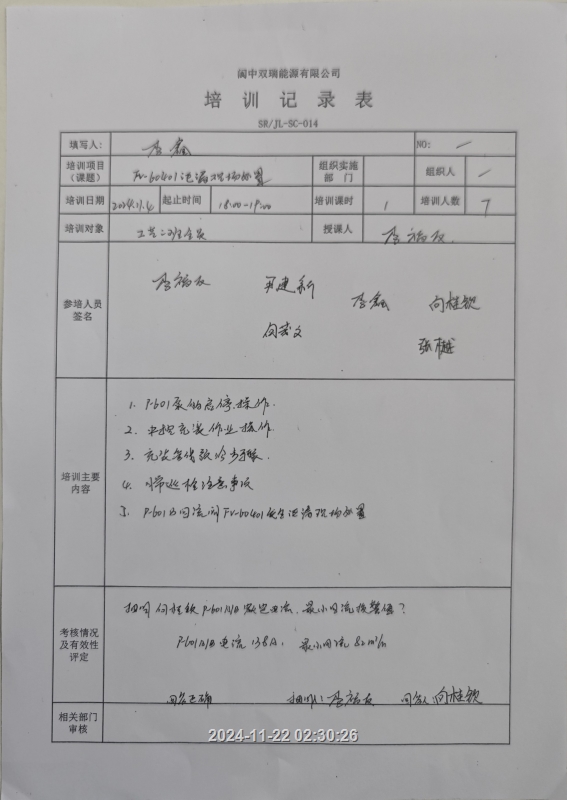 阆中双瑞能源有限公司
培训记录表
SR/JL-SC-014
填写人： 李鑫 NO: /
培训项目（课题） FV-60401泄漏现场处置 组织实施部门 组织人 /
培训日期 2024.11.4 起止时间 18:00-19:00 培训课时 1 培训人数 7
培训对象 工艺二班全员 授课人 李福友
参培人员签名
李福友 李鑫 向桂钦
向武文 张越
培训主要内容
1. P-601泵的启停操作.
2. 充装作业操作
3. 充装车借款冷步骤.
4. 日常巡检注意事项
5. P-601出口回流阀FV-60401发生泄漏现场处置
考核情况及有效性评定
抽问向桂钦P-601A/B额定电流、最小回流报警值？
P-601A/B电流138A, 最小回流82m³/h
回答正确 抽问人：李福友 回答人 向桂钦
相关部门审核
2024-11-22 02:30:26